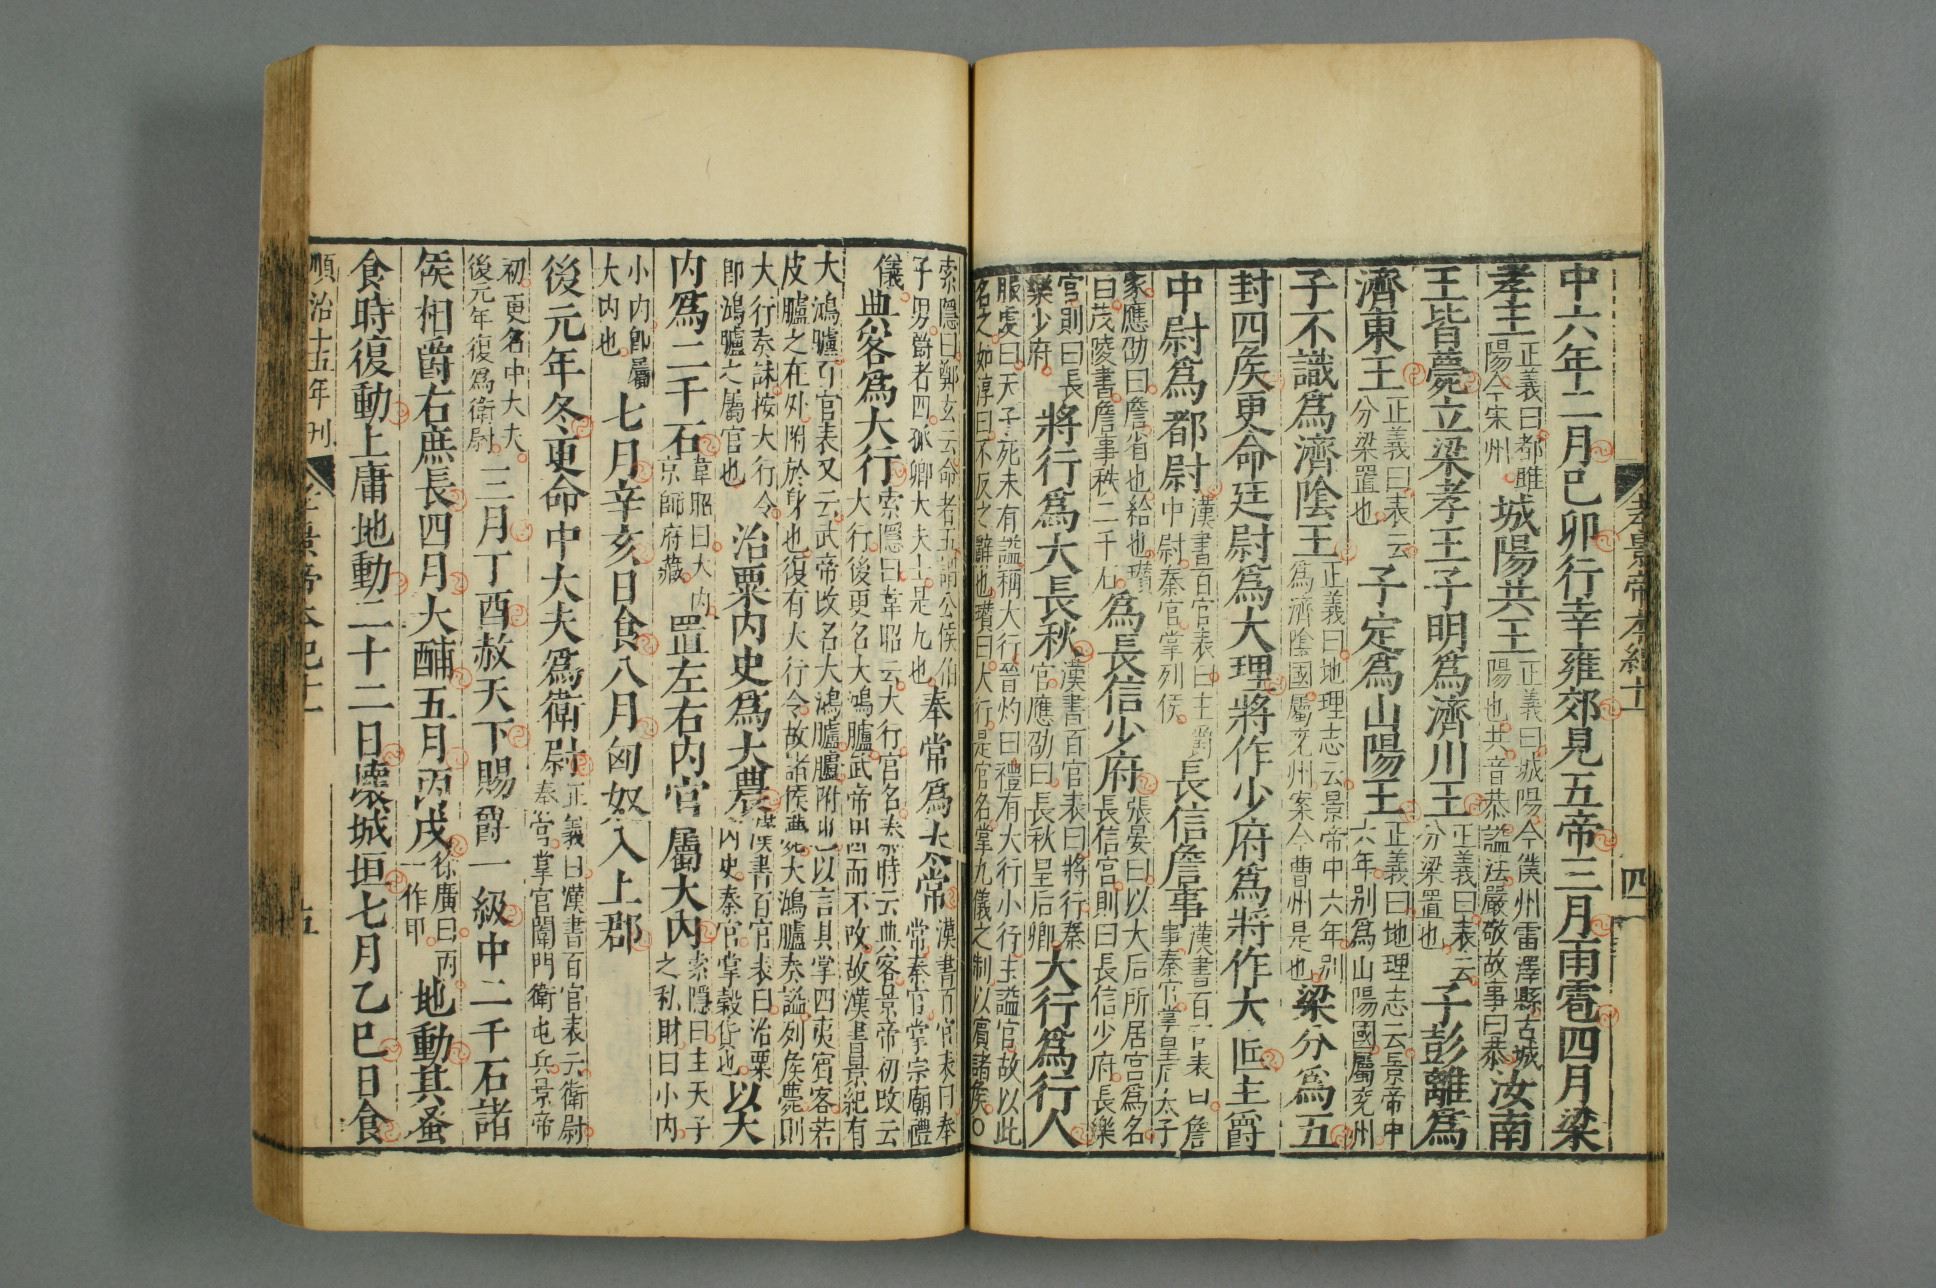 孝景帝本紀十一 四
中六年二月已卯行幸雍郊見五帝三月雨雹四月梁
孝王正義曰都睢陽今宋州城陽共王正義曰城陽今濮州雷澤縣古城陽也共音恭謚法嚴敬故事曰恭汝南
王皆薨立梁孝王子明爲濟川王正義曰表云分梁置也子彭離爲
濟東王正義曰表云分梁置也子定爲山陽王正義曰地理志云景帝中六年別爲山陽國屬兖州
子不識爲濟隂王正義曰地理志云景帝中六年別爲濟隂國屬兖州案今曹州是也梁分爲五
封四侯更命廷尉爲大理將作少府爲將作大匠主爵
中尉爲都尉漢書百官表曰主爵中尉秦官掌列侯長信詹事漢書百官表曰詹事秦官掌皇后太子
家應劭曰詹省也給也瓚曰茂陵書詹事秩二千石爲長信少府張晏曰以太后所居宮爲名長信宮則曰長信少府長樂
官則曰長樂少府將行爲大長秋漢書百官表曰將行秦官應劭曰長秋皇后卿大行爲行人
服虔曰天子死未有謚稱大行晉灼曰禮有大行小行主謚官故以此名之如淳曰不反之辭也瓚曰大行是官名掌九儀之制以賓諸侯○
索隱曰鄭玄云命者五謂公侯伯子男爵者四孤卿大夫士是九也奉常爲太常漢書百官表曰奉常秦官掌宗廟禮
儀典客爲大行索隱曰韋昭云大行官名秦時云典客景帝初改云大行後更名大鴻臚武帝因而不改故漢書景紀有
大鴻臚百官表又云武帝改名大鴻臚臚附也以言其掌四夷賓客若皮臚之在外附於身也復有大行令故諸侯薨大鴻臚奏謚列侯薨則
大行奏誄按大行令即鴻臚之屬官也治粟內史爲大農漢書百官表曰治粟內史秦官掌穀貨也以大
內爲二千石韋昭曰大內京師府藏置左右內官屬大內索隱曰主天子之私財曰小內
小內卽屬大內也七月辛亥日食八月匈奴入上郡
後元年冬更命中大夫爲衛尉正義曰漢書百官表云衛尉秦官掌宮闈門衛屯兵景帝
初更名中大夫後元年復爲衛尉三月丁酉赦天下賜爵一級中二千石諸
侯相爵右庶長四月大酺五月丙戌徐廣曰丙一作甲地動其蚤
食時復動上庸地動二十二日壞城垣七月乙巳日食
順治十五年刊 孝景帝本紀十一 五